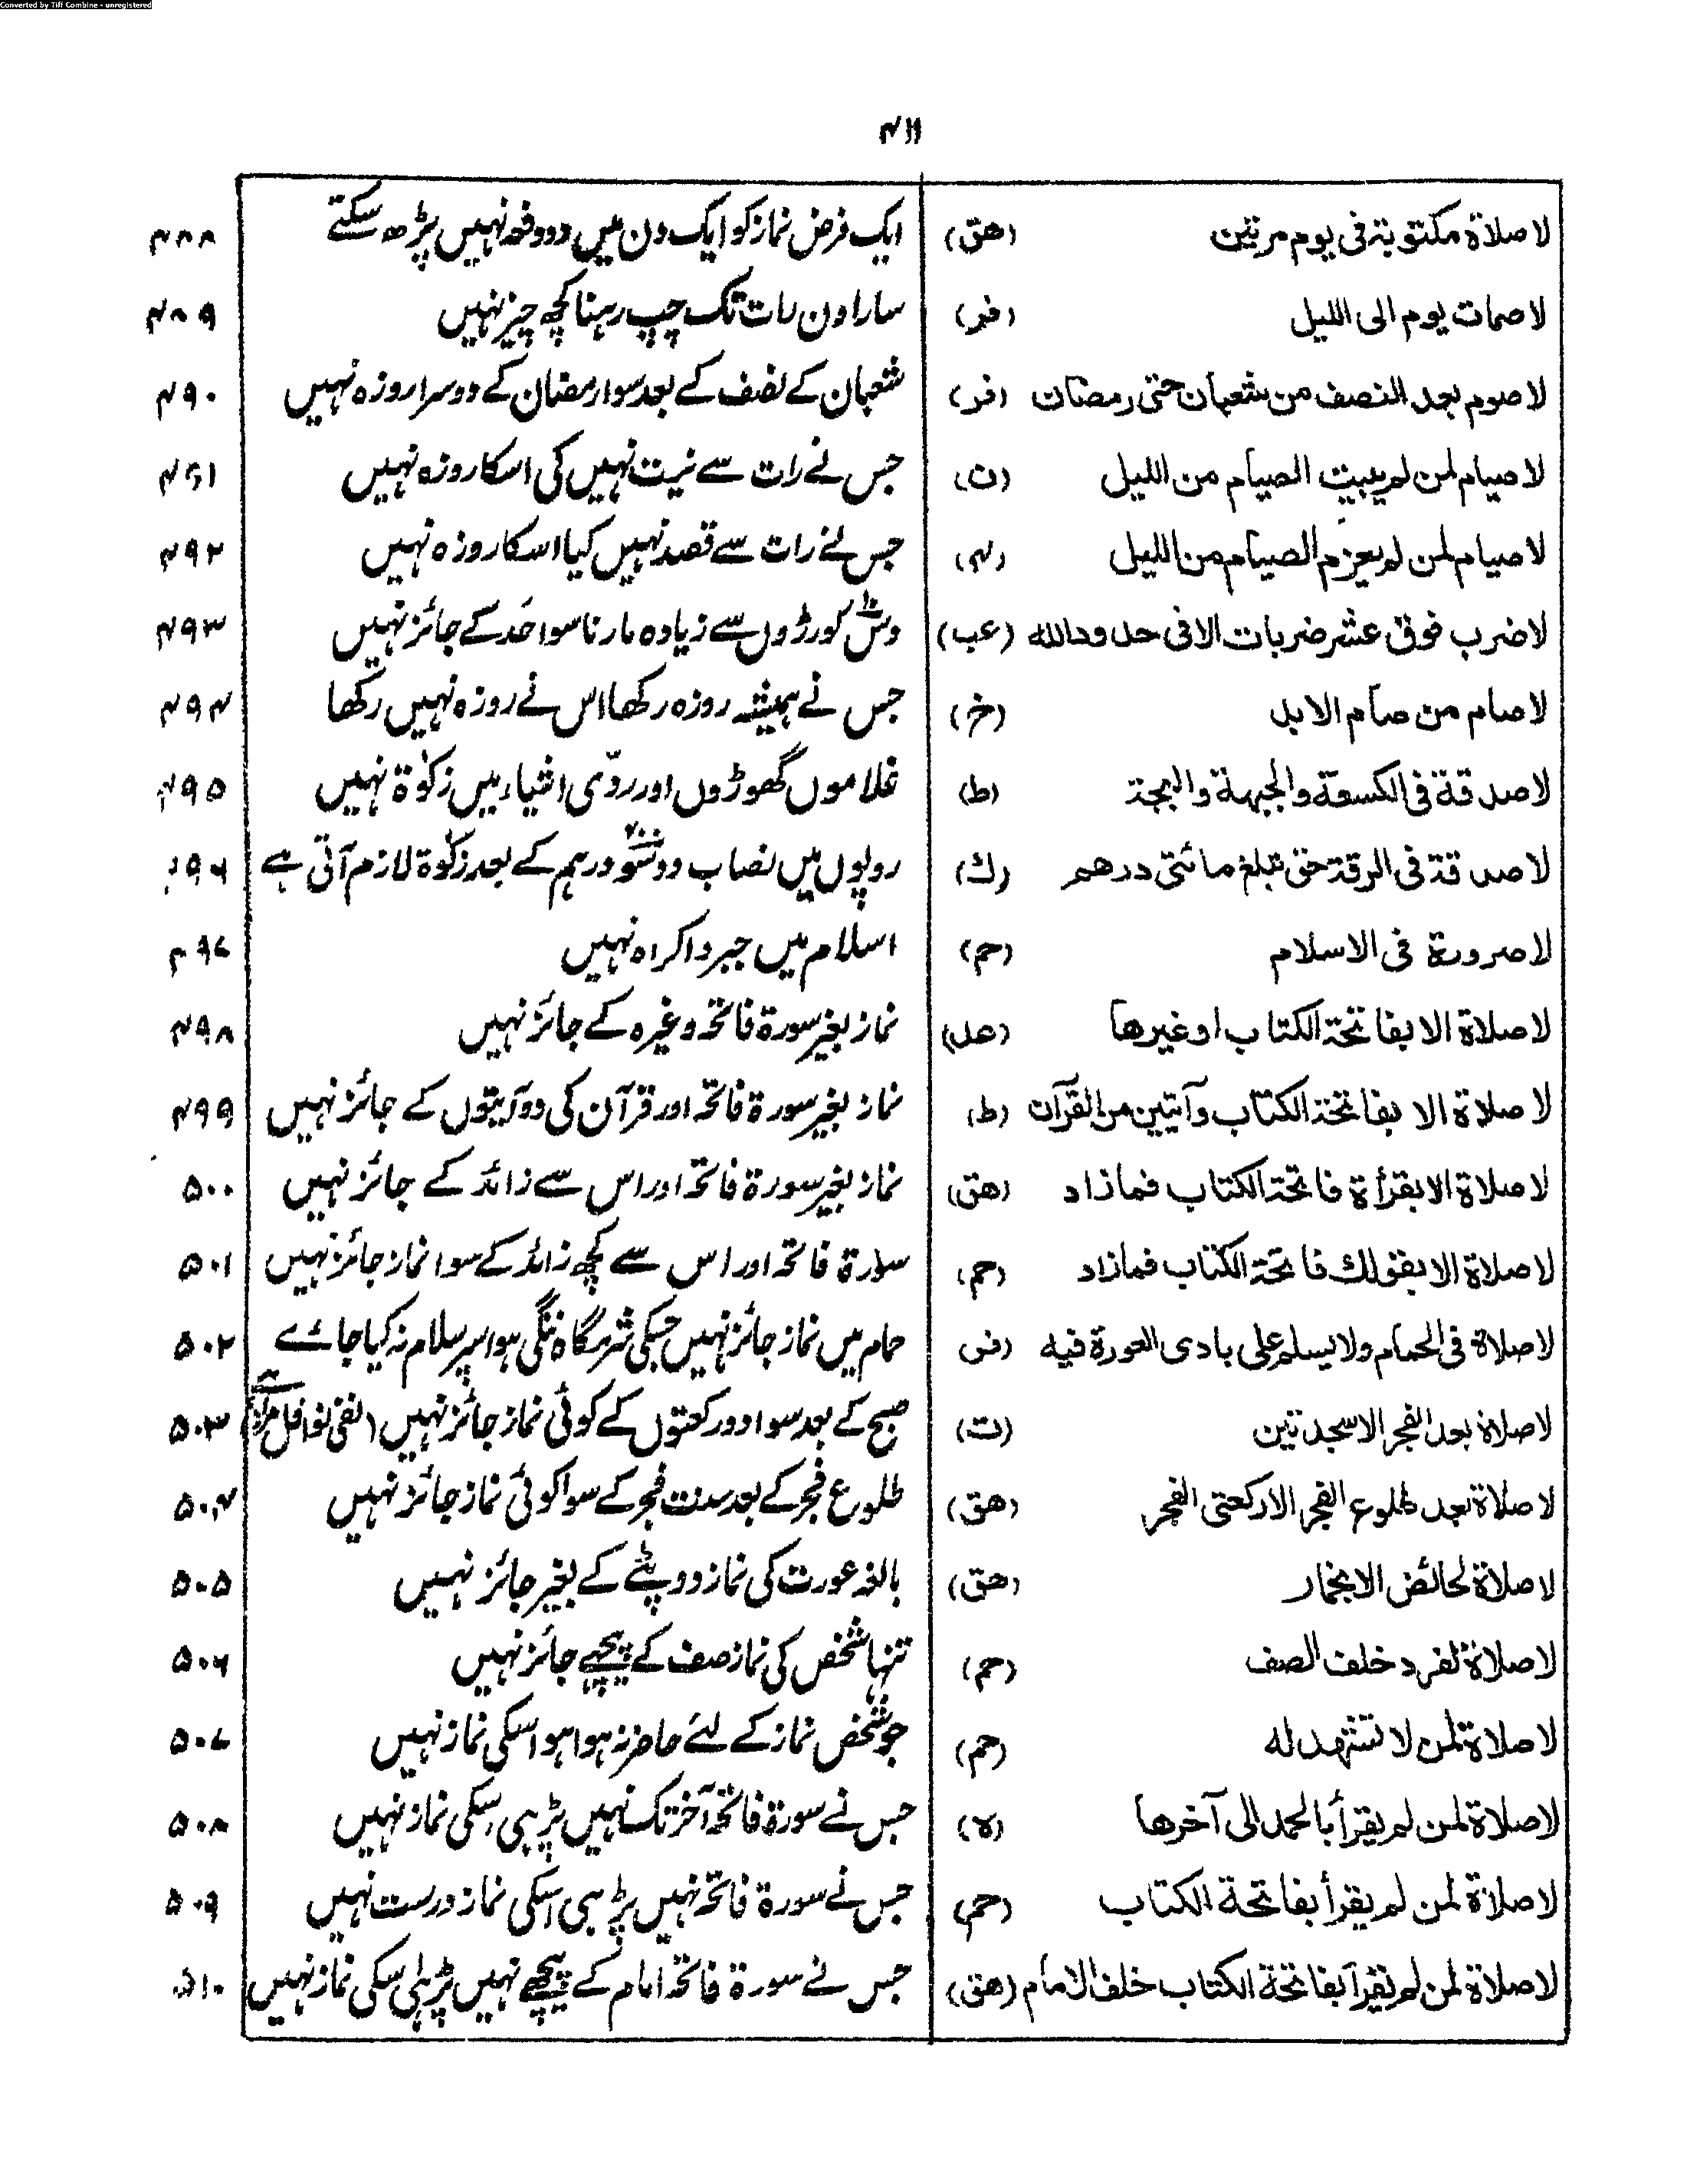 Converted by Tiff Combine - unregistered
۴۱۱
لا صلاة مكتوبة فى يوم مرتين (هق) ایک فرض نماز کو ایک دن میں دو دفعہ نہیں پڑھ سکتے ۴۸۸
لا صمات يوم الى الليل (فر) سارا دن رات تک چپ رہنا کچھ چیز نہیں ۴۸۹
لا صوم بعد النصف من شعبان حتى رمضان (فر) شعبان کے نصف کے بعد سوا رمضان کے دوسرا روزہ نہیں ۴۹۰
لا صيام لمن لم يبيت الصيام من الليل (ن) جس نے رات سے نیت نہیں کی اسکا روزہ نہیں ۴۹۱
لا صيام لمن لم يعزم الصيام من الليل جس نے رات سے قصد نہیں کیا اسکا روزہ نہیں ۴۹۲
لا ضرب فوق عشر ضربات الا فى حدود الله (عب) دس۱۰ کورڑوں سے زیادہ مارنا سوا حَد کے جائز نہیں ۴۹۳
لا صام من صام الابد (خ) جس نے ہمیشہ روزہ رکھا اس نے روزہ نہیں رکھا ۴۹۴
لا صدقة فى الكسعة والجبهة والنخة (ط) غلاموں گھوڑوں اور ردّی اشیاء میں زکوٰۃ نہیں ۴۹۵
لا صدقة فى الرقة حتى تبلغ مائتى درهم (ك) روپوں میں نصاب دو سو۲۰۰ درہم کے بعد زکوٰۃ لازم آتی ہے ۴۹۶
لا صرورة فى الاسلام (حم) اسلام میں جبر واکراہ نہیں ۴۹۷
لا صلاة الا بفاتحة الكتاب او غيرها (عد) نماز بغیر سورۃ فاتحہ وغیرہ کے جائز نہیں ۴۹۸
لا صلاة الا بفاتحة الكتاب وآيتين من القرآن (ط) نماز بغیر سورۃ فاتحہ اور قرآن کی دو آیتوں کے جائز نہیں ۴۹۹
لا صلاة الا بقرأة فاتحة الكتاب فمازاد (هق) نماز بغیر سورۃ فاتحہ اور اس سے زائد کے جائز نہیں ۵۰۰
لا صلاة الا بقولك فاتحة الكتاب فمازاد (حم) سورۃ فاتحہ اور اس سے کچھ زائد کے سوا نماز جائز نہیں ۵۰۱
لا صلاة فى الحمام ولا يسلم على بادى العورة فيه (فر) حمام میں نماز جائز نہیں جسکی شرمگاہ ننگی ہو اسپر سلام نہ کیا جائے ۵۰۲
لا صلاة بعد الفجر الا سجدتين (ت) صبح کے بعد سوا دو رکعتوں کے کوئی نماز جائز نہیں (نفی نوافل مراد ہے) ۵۰۳
لا صلاة بعد طلوع الفجر الا ركعتى الفجر (هق) طلوع فجر کے بعد سنت فجر کے سوا کوئی نماز جائز نہیں ۵۰۴
لا صلاة لحائض الا بخمار (هق) بالغہ عورت کی نماز دوپٹے کے بغیر جائز نہیں ۵۰۵
لا صلاة لفرد خلف الصف (حم) تنہا شخص کی نماز صف کے پیچھے جائز نہیں ۵۰۶
لا صلاة لمن لا تشهد له (حم) جو شخص نماز کے لئے حاضر نہ ہوا ہو اسکی نماز نہیں ۵۰۷
لا صلاة لمن لم يقرأ بالحمد الى آخرها (ه) جس نے سورۃ فاتحہ آخر تک نہیں پڑہی اسکی نماز نہیں ۵۰۸
لا صلاة لمن لم يقرأ بفاتحة الكتاب (حم) جس نے سورۃ فاتحہ نہیں پڑہی اسکی نماز درست نہیں ۵۰۹
لا صلاة لمن لم يقرأ بفاتحة الكتاب خلف الامام (هق) جس نے سورۃ فاتحہ امام کے پیچھے نہیں پڑہی اسکی نماز نہیں ۵۱۰